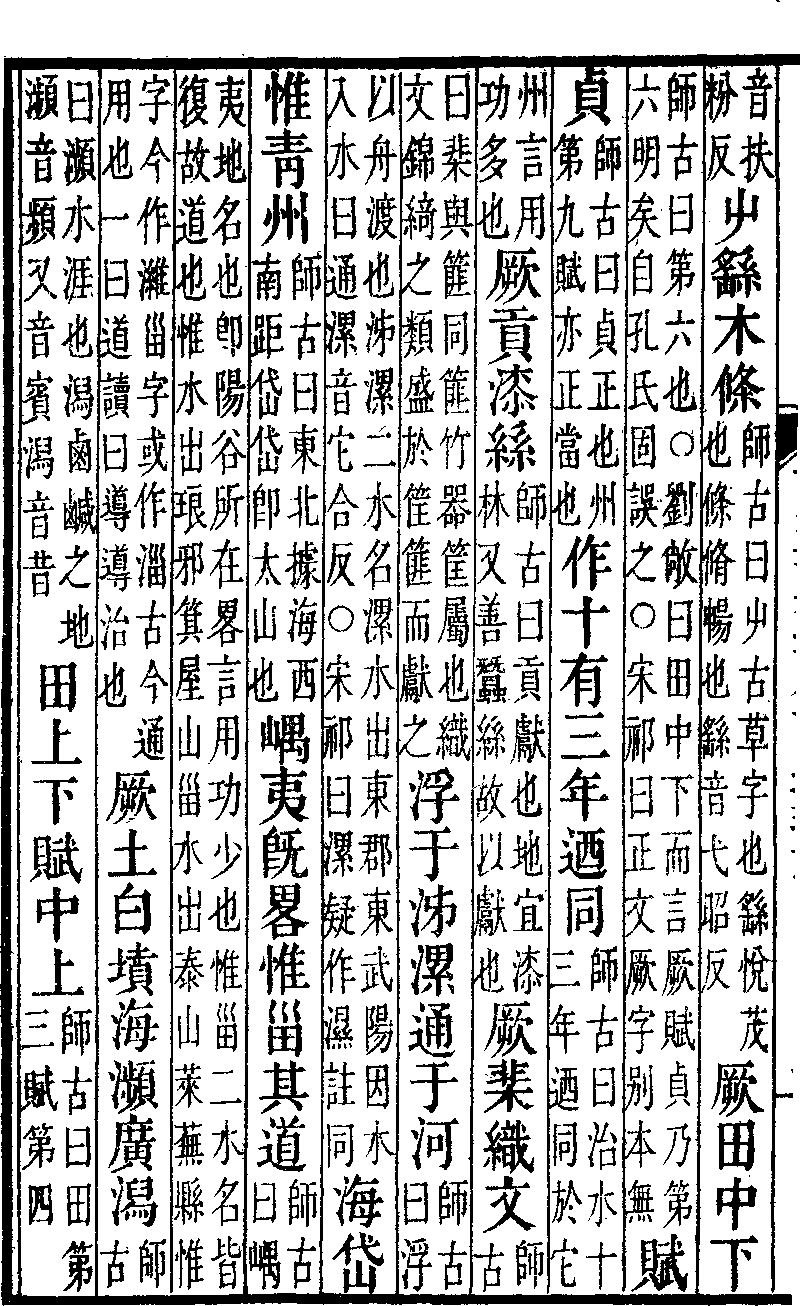 音扶粉反屮繇木條師古曰屮古草字也繇悅茂也條脩暢也繇音弋昭反厥田中下
師古曰第六也○劉敞曰田中下而言厥賦貞乃第六明矣自孔氏固誤之○宋祁曰正文厥字别本無賦
貞師古曰貞正也州第九賦亦正當也作十有三年迺同師古曰治水十三年迺同於它
州言用功多也厥貢漆絲師古曰貢獻也地宜漆林又善蠶絲故以獻也厥棐織文師古
曰棐與篚同篚竹器筐屬也織文錦綺之類盛於筐篚而獻之浮于泲漯通于河師古曰浮
以舟渡也泲漯二水名漯水出東郡東武陽因水入水曰通漯音它合反○宋祁曰漯疑作濕註同海岱
惟青州師古曰東北據海西南距岱岱卽太山也嵎夷旣畧惟甾其道師古曰嵎
夷地名也卽陽谷所在畧言用功少也惟甾二水名皆復故道也惟水出琅邪箕屋山甾水出泰山萊蕪縣惟
字今作濰甾字或作淄古今通用也一曰道讀曰導導治也厥土白墳海瀕廣潟師古
曰瀕水涯也潟鹵鹹之地瀕音頻又音賓潟音昔田上下賦中上師古曰田第三賦第四